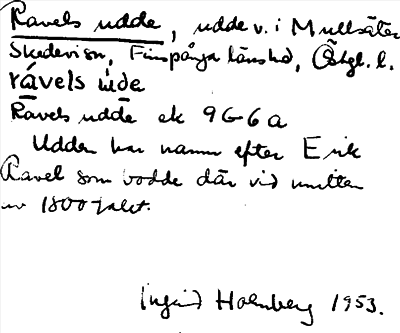 Ravels udde, udde v. i Mullsäter
Skedevi sn, Finspånga länshd, Östgl. l.
rávels ùde
Ravels udde ek 9G6a
Udden har namn efter Erik
Ravel som bodde där vid mitten
av 1800-talet.
Ingrid Holmberg 1953.